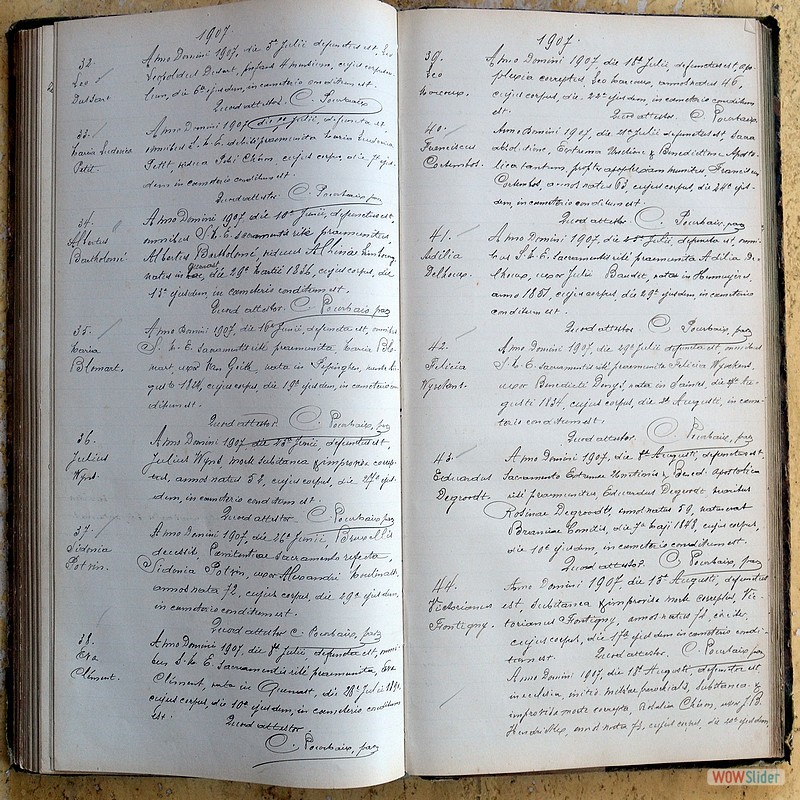 1907.
32.
Leo
Dussart
Anno Domini 1907, die 5ª Julii defunctus est, Leo
Leopoldus
die 6ª ejusdem, in cœmeterio conditum est.
Quod attestor. C. Pourbaix
33.
Maria Ludovica
Petit.
Anno Domini 1907, die Julii, defuncta est,
omnibus S. M. E. praemunita Maria Ludovica
Petit, vidua cujus corpus, die ejus-
dem in cœmeterio conditum est.
Quod attestor C. Pourbaix, par
34.
Albertus
Bartholomé
Anno Domini 1907 die 10ª Junii, defunctus est,
omnibus S. M. E. sacramentis ritè praemunitus
Albertus Bartholomé, viduus
natus in Quenast, die 29ª Martii 1836, cujus corpus, die
13ª ejusdem, in cœmeterio conditum est.
Quod attestor. C. Pourbaix, par
35.
Maria
Blomart.
Anno Domini 1907, die 16ª Junii, defuncta est, omnibus
S. M. E. sacramentis ritè praemunita Maria Blo-
mart, uxor nata in Pepingen,
cujus corpus, die 19ª ejusdem, in cœmeterio con-
ditum est.
Quod attestor. C. Pourbaix, par
36.
Julius
Wyns.
Anno Domini 1907, die 25ª Junii, defunctus est,
Julius Wyns, morte subitanea & improvisa correp-
tus, annos natus 52, cujus corpus, die 27ª ejus-
dem, in cœmeterio conditum est.
Quod attestor C. Pourbaix, par
37.
Sidonia
Potvin.
Anno Domini 1907, die 26ª Junii, Bruxellis
decessit, Pœnitentiae sacramento refecta,
Sidonia Potvin, uxor Alexandri
annos nata 72, cujus corpus, die 29ª ejusdem,
in cœmeterio conditum est.
Quod attestor C. Pourbaix, par
38.
Eva
Clément.
Anno Domini 1907, die 8ª Julii defuncta est, omni-
bus S. M. E. Sacramentis ritè praemunita, Eva
Clément, nata in Quenast, die 28ª Julii
cujus corpus, die 10ª ejusdem, in cœmeterio conditum
est.
Quod attestor
C. Pourbaix, par
1907.
39.
Leo
Marcoux.
Anno Domini 1907, die 18ª Julii, defunctus est, apo-
plexia correptus, Leo Marcoux, annos natus 46,
cujus corpus, die 22ª ejusdem, in cœmeterio conditum
est.
Quod attestor. C. Pourbaix
40.
Franciscus
Anno Domini 1907, die 21ª Julii defunctus est, Sacra
absolutione, Extrema Unctione & Benedictione Aposto-
lica tantum, propter apoplexiam munitus Franciscus
annos natus 63, cujus corpus, die 24ª ejus-
dem, in cœmeterio conditum est.
Quod attestor C. Pourbaix, par
41.
Adilia
Delhoux.
Anno Domini 1907, die Julii, defuncta est, omni-
bus S. M. E. Sacramentis ritè praemunita Adilia De-
lhoux, uxor Julii Baudet, nata in Hennuyères,
anno 1861, cujus corpus, die 29ª ejusdem, in cœmeterio
conditum est.
Quod attestor C. Pourbaix, par
42.
Felicia
Anno Domini 1907, die 29ª Julii defuncta est, omnibus
S. M. E. sacramentis ritè praemunita Felicia
uxor Benedicti nata in Saintes, die Au-
gusti 1834, cujus corpus, die Augusti, in cœme-
terio conditum est.
Quod attestor. C. Pourbaix, par
43.
Eduardus
Degroodt.
Anno Domini 1907, die Augusti, defunctus est,
Sacramento Extremae Unctionis & Bened. Apostolica
ritè praemunitus, Eduardus Degroodt, maritus
Rosinae Degroodt, annos natus 59, natus erat
Brainiae Comitis, die 7ª Maji 1848, cujus corpus,
die 10ª ejusdem, in cœmeterio conditum est.
Quod attestor. C. Pourbaix, par
44.
Victorianus
Fontigny.
Anno Domini 1907, die 15ª Augusti, defunctus
est, subitanea & improvisa morte correptus, Vic-
torianus Fontigny, annos natus
cujus corpus, die 17ª ejusdem in cœmeterio condi-
tum est. Quod attestor. C. Pourbaix, par
Anno Domini 1907, die 18ª Augusti, defuncta est
in ecclesia, initio missae parochialis, subitanea &
improvisa morte correpta, Rosalia Chiem, uxor J. B.
Hendrickx, annos nata 73, cujus corpus, die 20ª ejusdem
WOWSlider